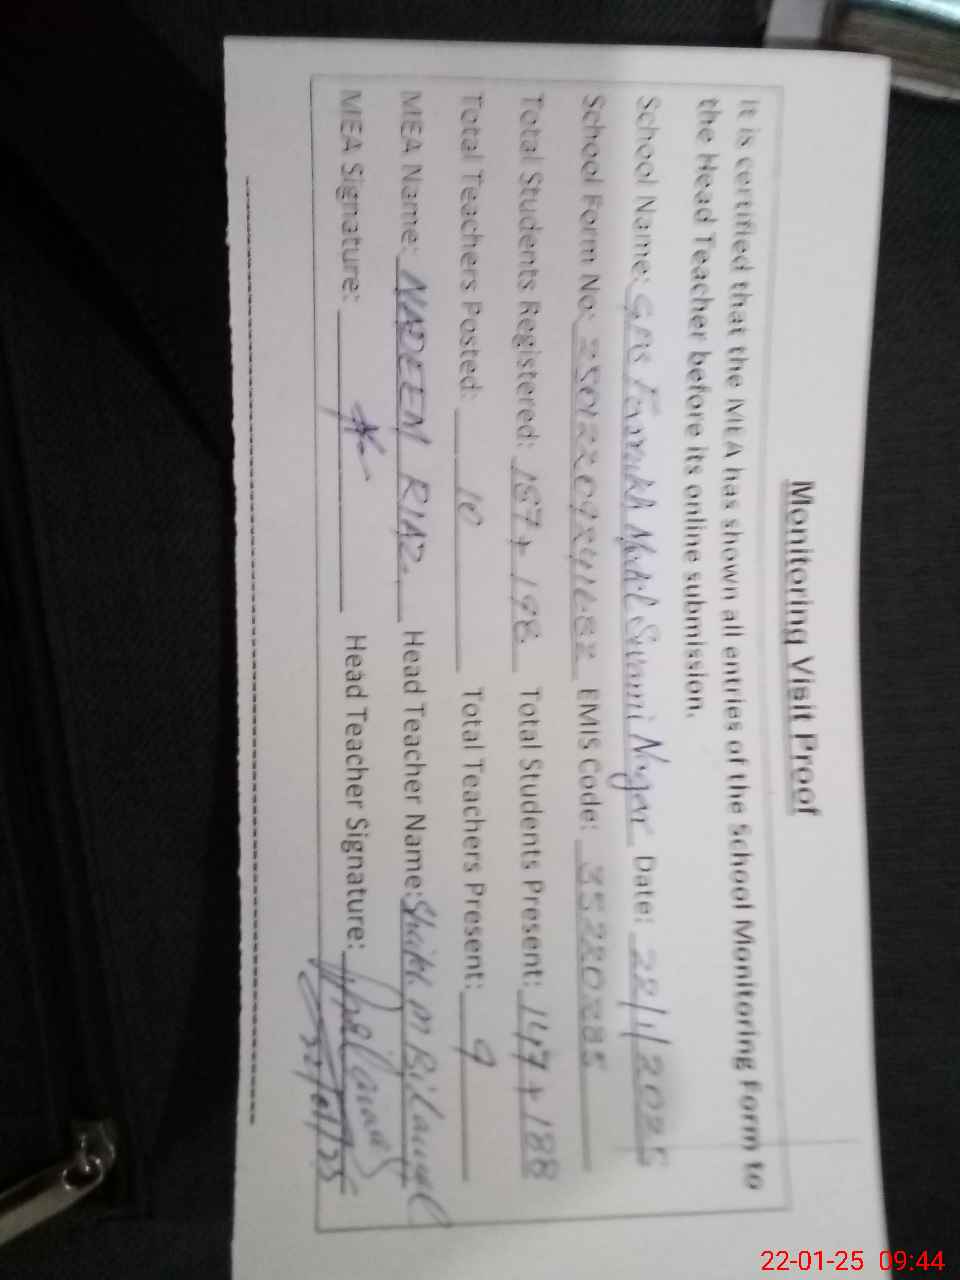 Monitoring Visit Proof
It is certified that the MEA has shown all entries of the School Monitoring Form to
the Head Teacher before its online submission.
School Name: Model Swami Nagar Date: 22/1/2025
School Form No: EMIS Code: 35220285
Total Students Registered: 157+198 Total Students Present: 147+188
Total Teachers Posted: 10 Total Teachers Present: 9
MEA Name: NADEEM RIAZ. Head Teacher Name: Shaikh M Bilawal
MEA Signature: Head Teacher Signature:
22-01-25 09:44